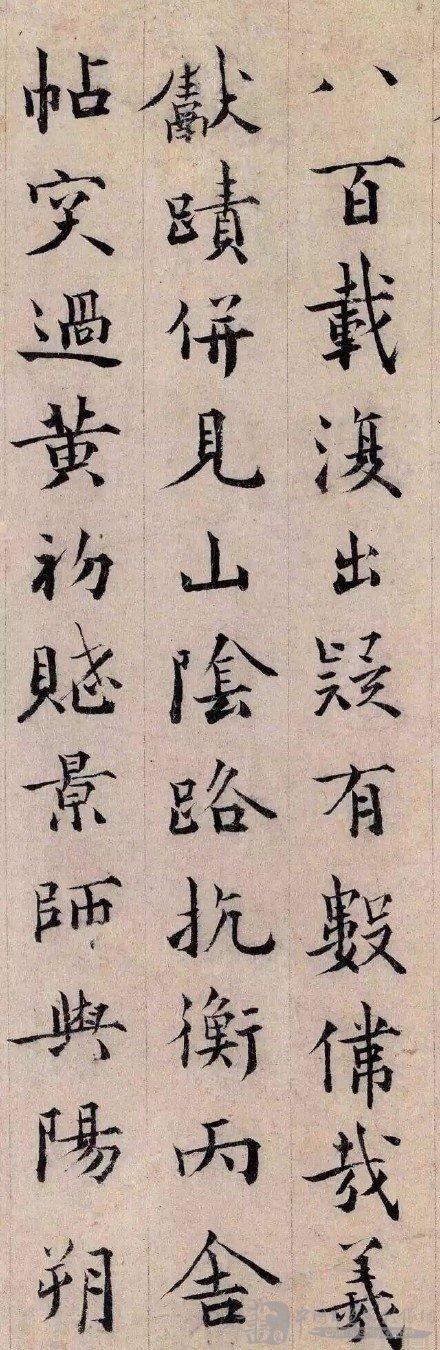 八百載復出疑有數偉哉羲
獻蹟併見山陰路抗衡丙舍
帖突過黄初賦景師與陽朔